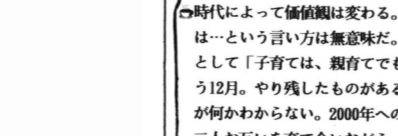 時代によって価値観は変わる。
は…という言い方は無意味だ。
として「子育ては、親育てでも
う12月。やり残したものがある
が何かわからない。2000年への